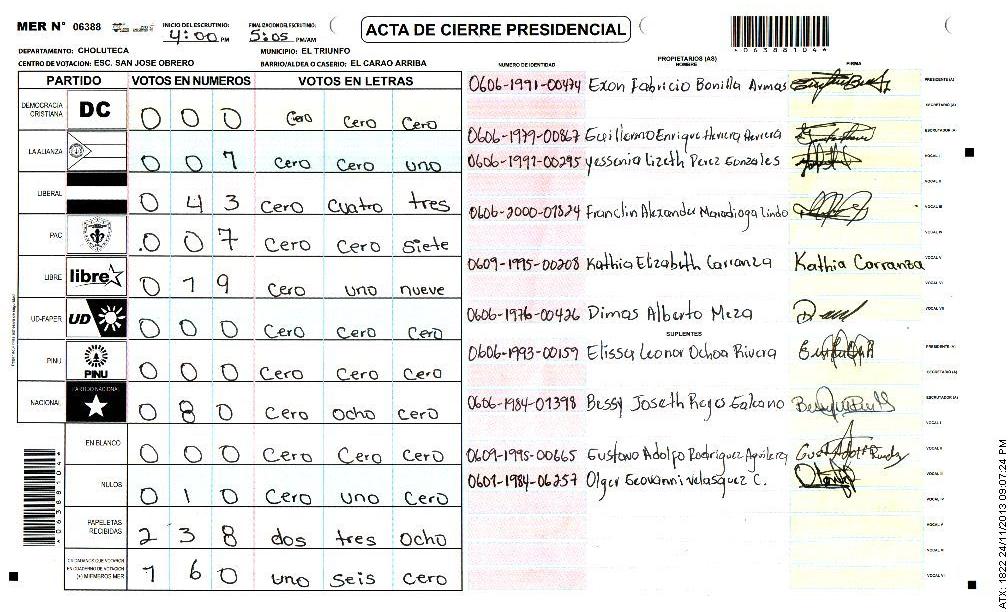 MER N° 06388
INICIO DEL ESCRUTINIO: 4:00 PM
FINALIZACION DEL ESCRUTINIO: 5:05 PM/AM
ACTA DE CIERRE PRESIDENCIAL
*06388104*
DEPARTAMENTO: CHOLUTECA
MUNICIPIO: EL TRIUNFO
CENTRO DE VOTACION: ESC. SAN JOSE OBRERO
BARRIO/ALDEA O CASERIO: EL CARAO ARRIBA
PARTIDO VOTOS EN NUMEROS VOTOS EN LETRAS
DEMOCRACIA CRISTIANA DC 0 0 0 Cero Cero Cero
LA ALIANZA 0 0 1 Cero Cero uno
LIBERAL 0 4 3 Cero Cuatro tres
PAC 0 0 7 Cero Cero Siete
LIBRE libre 0 1 9 Cero uno nueve
UD-FAPER UD 0 0 0 Cero Cero Cero
PINU PINU 0 0 0 Cero Cero Cero
NACIONAL PARTIDO NACIONAL 0 8 0 Cero Ocho Cero
EN BLANCO 0 0 0 Cero Cero Cero
NULOS 0 1 0 Cero uno Cero
PAPELETAS RECIBIDAS 2 3 8 dos tres Ocho
CIUDADANOS QUE VOTARON EN CUADERNO DE VOTACION (+) MIEMBROS MER 1 6 0 uno Seis Cero
*06388104*
PROPIETARIOS (AS)
NUMERO DE IDENTIDAD NOMBRE FIRMA
0606-1991-00474 Exon Fabricio Bonilla Armas PRESIDENTE (A)
SECRETARIO (A)
0606-1979-00867 Guillermo Enrique Herrera Herrera ESCRUTADOR (A)
0606-1992-00295 yessenia Lizeth Perez Gonzales VOCAL I
VOCAL II
0606-2000-01824 Franclin Alexander Maradiaga Lindo VOCAL III
VOCAL IV
0609-1995-00208 Kathia Elizabeth Carranza Kathia Carranza VOCAL V
VOCAL VI
0606-1976-00426 Dimas Alberto Meza VOCAL VII
SUPLENTES
0606-1993-00159 Elissa Leonor Ochoa Rivera PRESIDENTE (A)
SECRETARIO (A)
0606-1984-01398 Bessy Joseth Reyes Galeano ESCRUTADOR (A)
VOCAL I
0609-1995-00665 Gustavo Adolfo Rodriguez Aguilera VOCAL II
0601-1984-06257 Olger Geovanni velasquez C. VOCAL III
VOCAL IV
VOCAL V
VOCAL VI
VOCAL VII
ATX: 1822 24/11/2013 09:07:24 PM